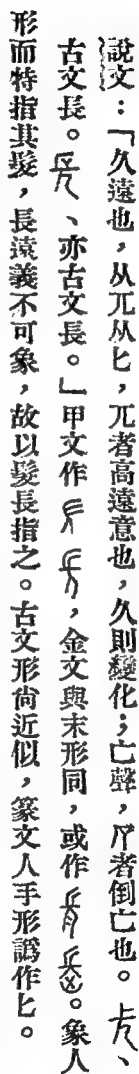 說文：「久遠也，从兀从匕，兀者高遠意也，久則變化；亡聲，𠃬者倒亡也。、
古文長。、亦古文長。」甲文作，金文與末形同，或作。象人
形而特指其髮，長遠義不可象，故以髮長指之。古文形尚近似，篆文人手形譌作匕。